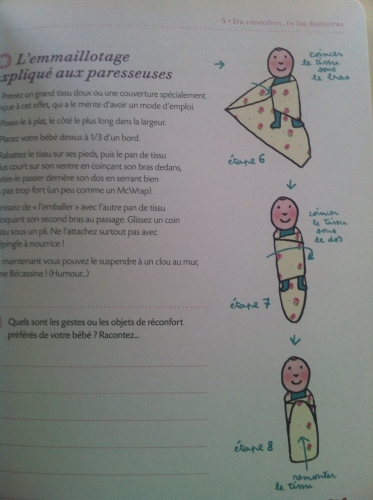 5 • Un réconfort, tu lui donneras
L'emmaillotage
expliqué aux paresseuses
Prenez un grand tissu doux ou une couverture spécialement
conçue à cet effet, qui a le mérite d'avoir un mode d'emploi.
Posez-le à plat, le côté le plus long dans la largeur.
Placez votre bébé dessus à 1/3 d'un bord.
Rabattez le tissu sur ses pieds, puis le pan de tissu
plus court sur son ventre en coinçant son bras dedans,
faites-le passer derrière son dos en serrant bien
pas trop fort (un peu comme un McWrap).
Finissez de « l'emballer » avec l'autre pan de tissu
bloquant son second bras au passage. Glissez un coin
sous un pli. Ne l'attachez surtout pas avec
épingle à nourrice !
maintenant vous pouvez le suspendre à un clou au mur,
Bécassine ! (Humour...)
Quels sont les gestes ou les objets de réconfort
préférés de votre bébé ? Racontez...
coincer
le tissu
sous
le bras
étape 6
coincer
le tissu
sous
le dos
étape 7
étape 8
remonter
le tissu